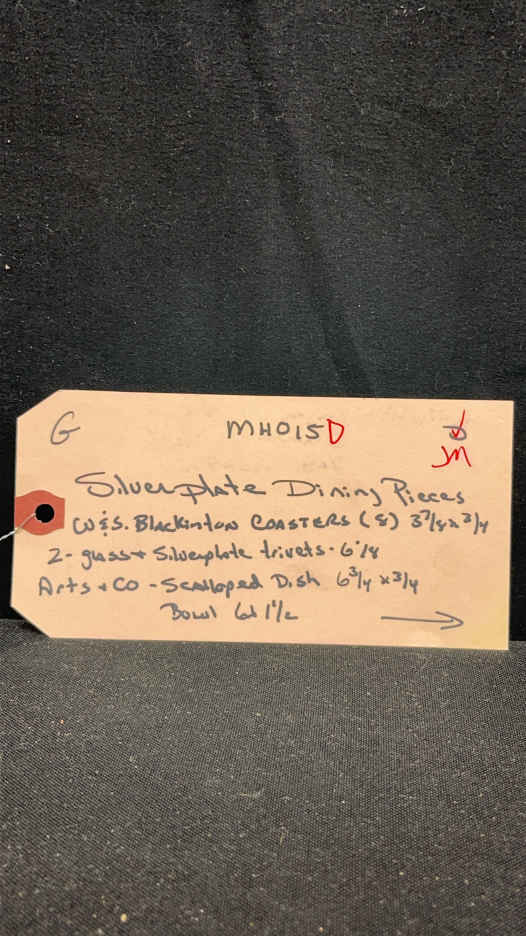 G MH015D J
JM
Silverplate Dining Pieces
W&S. Blackinton Coasters (8) 3 7/8 x 3/4
2- glass + Silverplate trivets - 6 1/8
Arts + Co - Scalloped Dish 6 3/4 x 3/4
Bowl 1 1/2
→